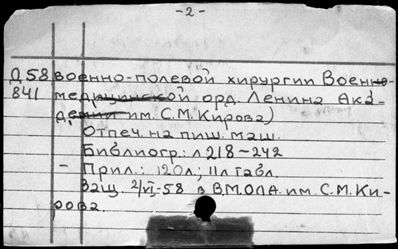 -2-
Д58 военно-полевой хирургии Военно-
841 медицинской орд. Ленина Ака-
демии им. С.М. Кирова)
Отпеч. на пиш. маш.
Библиогр.: л 218-242
- Прил.: 120л.; 11л табл.
Защ. 2/VI-58 в ВМОЛА им. С.М. Ки-
рова.